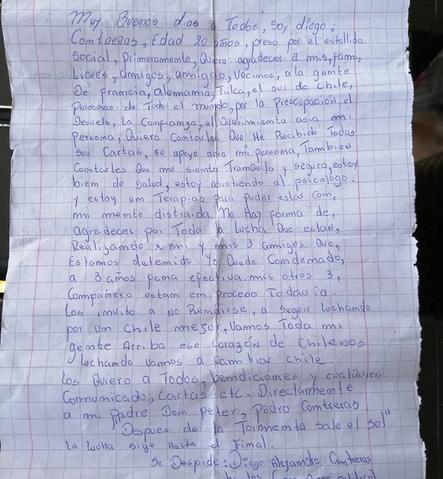 Muy Buenos dias a Todos, Soy diego,
Contreras, Edad 20 años, preso por el estallido
Social, Primeramente, Quiero agradecer a mis, fami,
liares, amigos, amigas, Vecinos, a la gente
De francia, alemania, Talca, el sur de Chile,
Personas de Todo el mundo, por la Preocupación, el
Desvelo, La Confianza, el Querimiento asia mi
Persona, Quiero Contarles Que He Recibido Todas
Sus Cartas, su apoyo asia mi persona, Tambien
Contarles Que me siento Tranquilo y seguro, estoy
bien de salud, estoy asistiendo al psicologo.
y estoy en Terapias para poder estar con,
mi mente distraida, No Hay forma de,
agradecer por Toda la Lucha Que estan,
Realizando x mi y mis 3 amigos Que,
Estamos detenido Yo Quede Condenado,
a 3 años pena efectiva mis otros 3,
Compañero estan en proceso Todavia.
Los invito a No Rendirse, a Seguir Luchando
por un Chile mejor, Vamos Toda mi
gente Arriba ese Corazón de Chilenos
Luchando Vamos a Cambiar Chile
Los Quiero a Todos, bendiciones y cualquier,
Comunicado, Cartas etc. Directamente
a mi Padre Don Peter, Pedro Contreras
"Despues de la Tormenta Sale el Sol"
La Lucha sige Hasta el Final.
Se Despide: Diego Alejandro Contreras